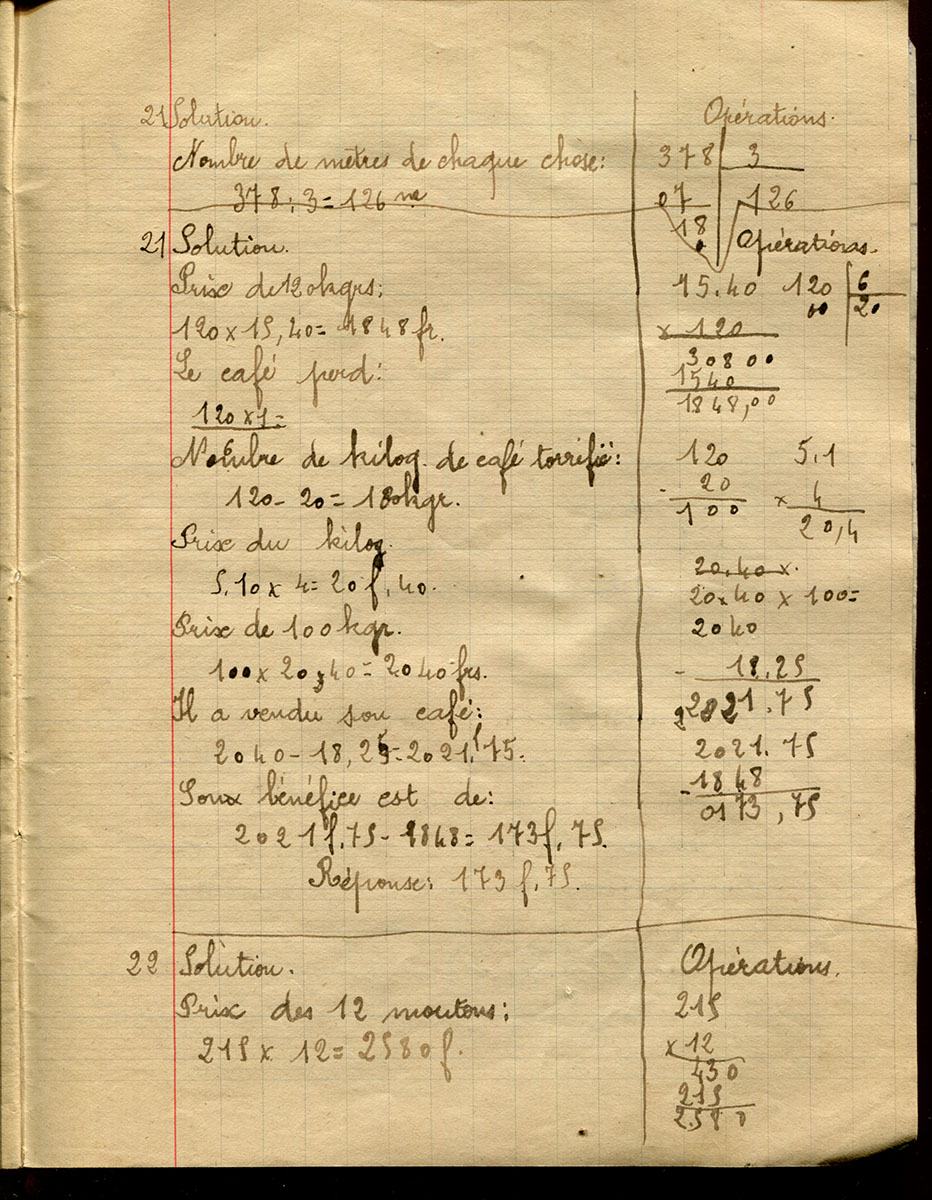 21 Solution.
Nombre de mètres de chaque chose:
378 : 3 = 126 m
Opérations.
378 3
07 126
18
0
21 Solution.
Prix de 120 kgrs:
120 x 15,40 = 1848 fr.
Le café perd:
120 x 1 =
6
Nombre de kilog. de café torrifié:
120 - 20 = 100 kgr.
Prix du kilog.
5,10 x 4 = 20 f,40.
Prix de 100 kgr.
100 x 20,40 = 2040 frs.
Il a vendu son café:
2040 - 18,25 = 2021,f75.
Son bénéfice est de:
2021 f,75 - 1848 = 173 f,75.
Réponse: 173 f,75.
Opérations.
15.40 120 6
00 20
x 120
30800
1540
1848,00
120 5,1
- 20 x 4
100 20,4
20,40 x.
20,40 x 100 =
2040
- 18,25
2021.75
2021.75
- 1848
0173,75
22 Solution.
Prix des 12 moutons:
215 x 12 = 2580 f.
Opérations.
215
x 12
430
215
2580